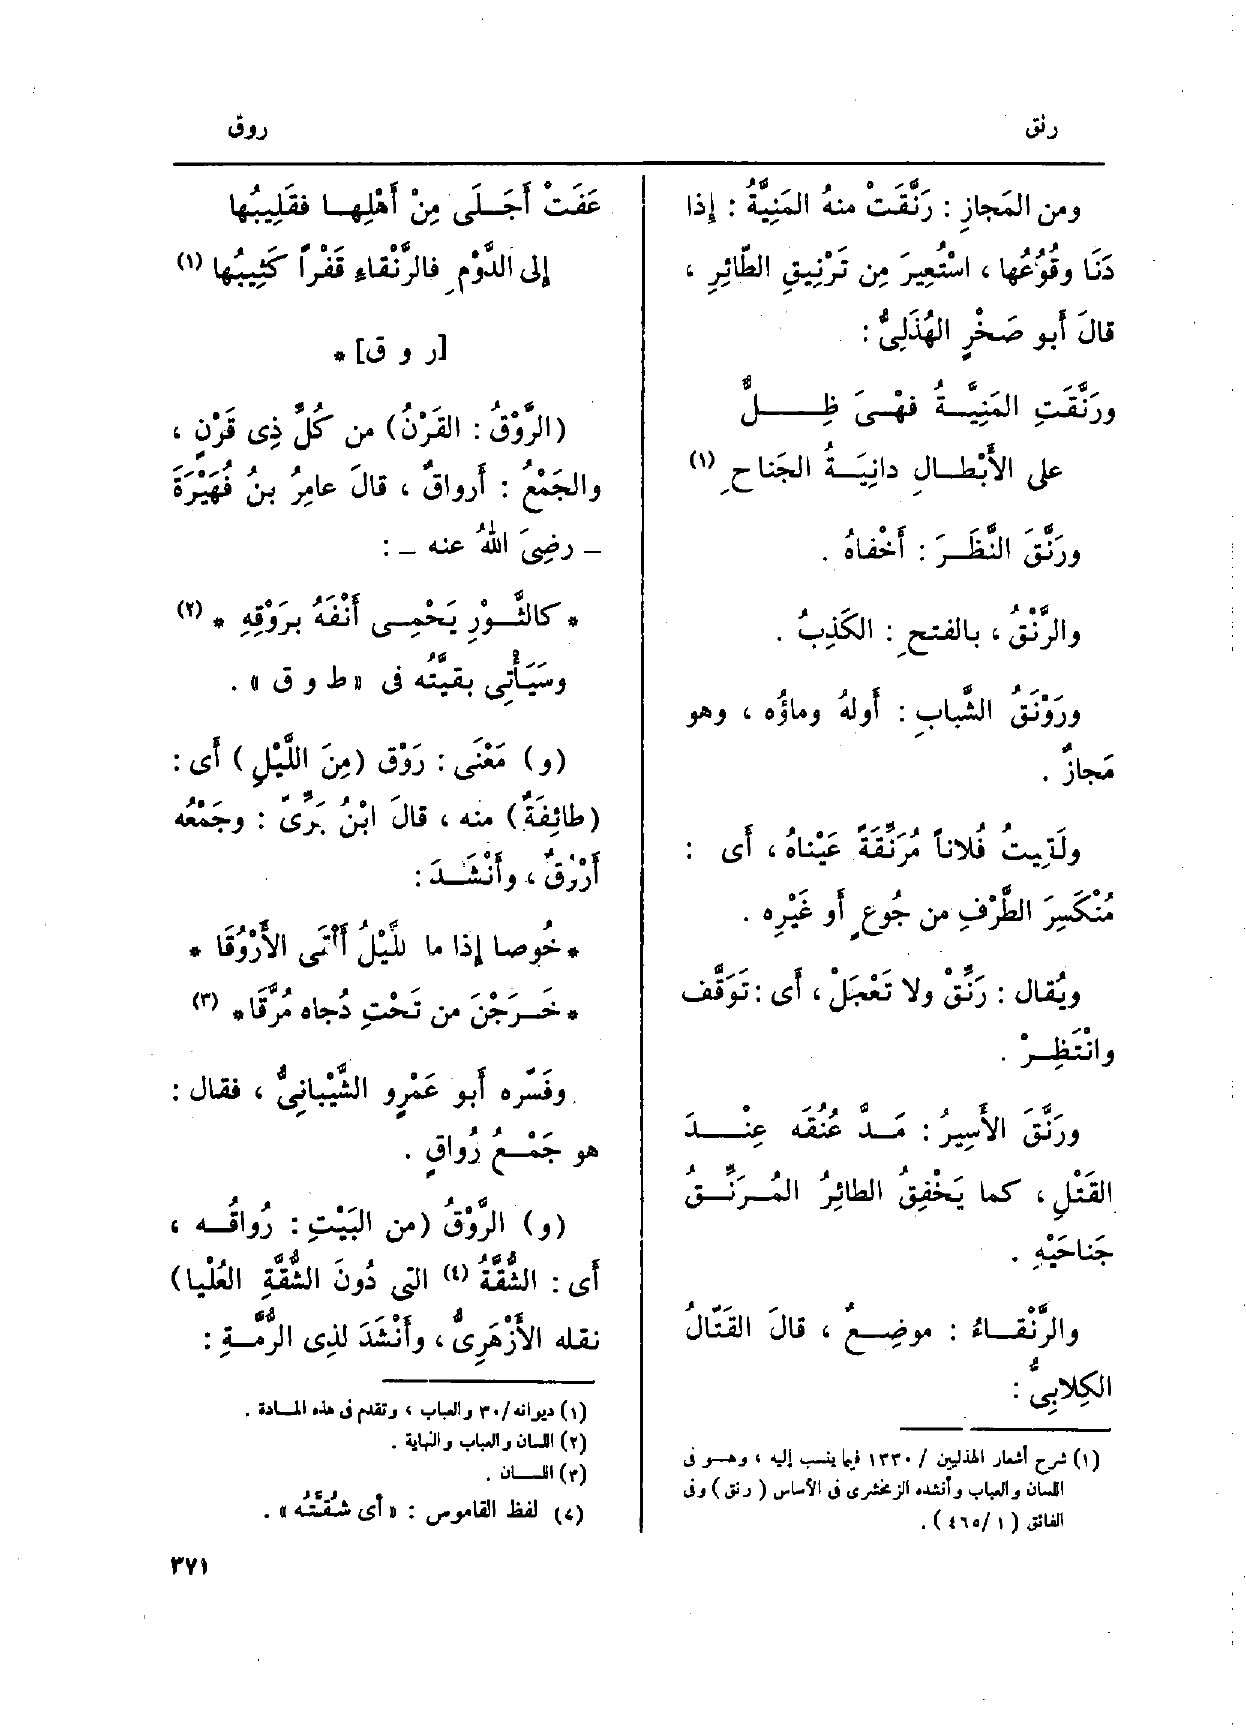 رنق
روق
ومن المَجازِ : رَنَّقَتْ منهُ المَنِيَّةُ : إذا
دَنَا وقُوُعُها ، اسْتُعِيرَ مِن تَرْنِيقِ الطّائِرِ ،
قالَ أَبو صَخْرٍ الهُذَلِىُّ :
ورَنَّقَتِ المَنِيَّةُ فهْىَ ظِلٌّ
على الأَبْطالِ دانِيَةُ الجَناحِ (١)
ورَنَّقَ النَّظَرَ : أَخْفاهُ .
والرَّنْقُ ، بالفتحِ : الكَذِبُ .
ورَوْنَقُ الشَّبابِ : أَولهُ وماؤُه ، وهو
مَجازٌ .
ولَقِيتُ فُلاناً مُرَنِّقَةً عَيْناهُ ، أَى :
مُنْكَسِرَ الطَّرْفِ من جُوعٍ أَو غَيْرِه .
ويُقال : رَنِّقْ ولا تَعْجَلْ ، أَى : تَوَقَّف
وانْتَظِرْ .
ورَنَّقَ الأَسِيرُ : مَدَّ عُنُقَه عِنْدَ
القَتْلِ ، كما يَخْفِقُ الطائِرُ المُرَنِّقُ
جَناحَيْهِ .
والرَّنْقاءُ : موضِعٌ ، قالَ القَتّالُ
الكِلابِىُّ :
(١) شرح أشعار الهذليين / ١٣٣٠ فيما ينسب إليه ، وهو فى
اللسان والعباب وأنشده الزمخشرى فى الأساس ( رنق ) وفى
الفائق ( ١ /٤٦٥ ) .
عَفَتْ أَجَلَى مِنْ أَهْلِها فقَلِيبُها
إلى الدَّوْمِ فالرَّنْقاءِ قَفْراً كَثِيبُها (١)
[ر و ق] *
(الرَّوْقُ : القَرْنُ) من كُلِّ ذِى قَرْنٍ ،
والجَمْعُ : أَرواقٌ ، قالَ عامِرُ بنُ فُهَيْرَةَ
_ رضِىَ اللهُ عنه _ :
* كالثَّوْرِ يَحْمِى أَنْفَهُ بِرَوْقِهِ * (٢)
وسَيَأْتِى بقيَّتُه فى « ط و ق » .
(و) مَعْنَى : رَوْق (مِنَ اللَّيْلِ) أَى :
(طائِفَةٌ) منه ، قالَ ابْنُ بَرِّىّ : وجَمْعُه
أَرْوُقٌ ، وأَنْشَدَ :
* خُوصا إذا ما للَّيْلُ أَلْقَى الأَرْوُقَا *
* خَرَجْنَ من تَحْتِ دُجاه مُرَّقَا * (٣)
وفَسَّره أَبو عَمْرٍو الشَّيْبانِىُّ ، فقال :
هو جَمْعُ رُواقٍ .
(و) الرَّوْقُ (من البَيْتِ : رُواقُه ،
أَى : الشُّقَّةُ (٤) التى دُونَ الشُّقَّةِ العُلْيا)
نقله الأَزْهَرِىُّ ، وأَنْشَدَ لذِى الرُّمَّةِ :
(١) ديوانه/ ٣٠ والعباب ، وتقدم فى هذه المادة .
(٢) اللسان والعباب والنهاية .
(٣) اللسان .
(٤) لفظ القاموس : « أى شُقَّتُه » .
٣٧١